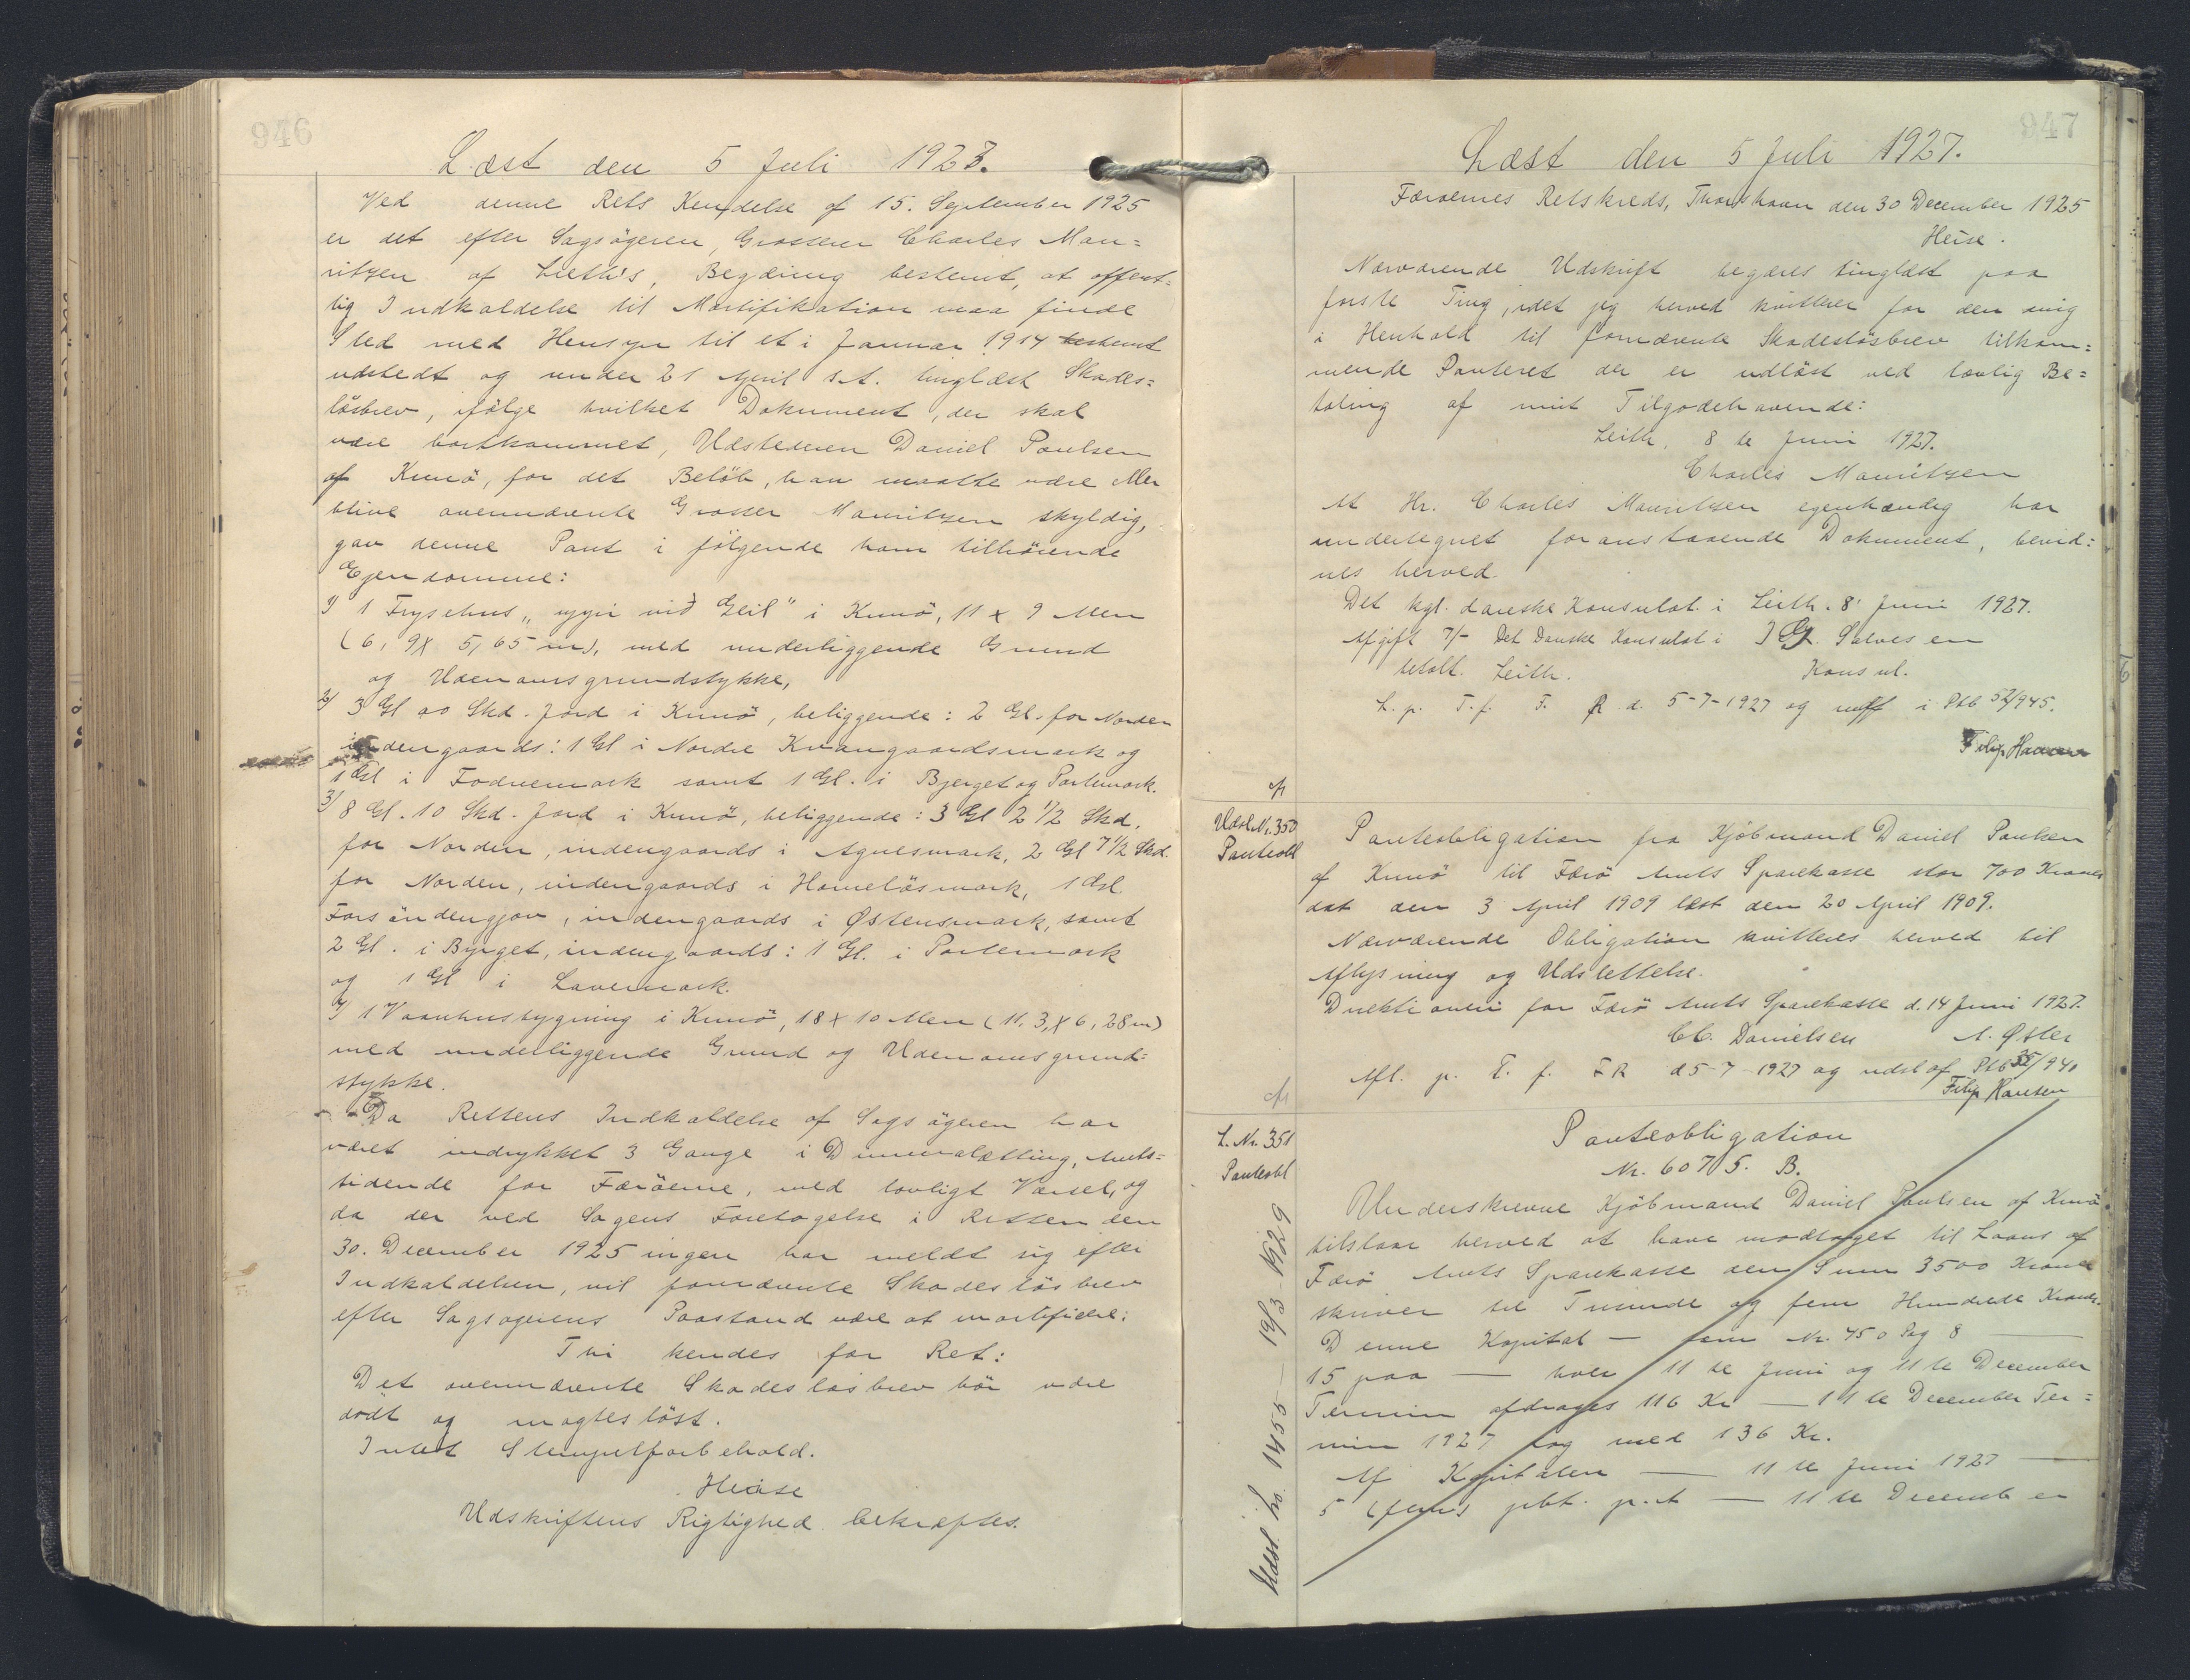 946
Læst den 5 Juli 1927.
Ved denne Rets Kendelse af 15. September 1925
er det efter Sagsögeren, Grosserer Charles Mau=
ritzen af Leith's, Begæring bestemt, at offent=
lig Indkaldelse til Mortifikation maa finde
Sted med Hensyn til et i Januar 1914 bestemt
udstedt og under 21 April s.A. tinglæst Skades=
lösbrev, ifölge hvilket Dokument, der skal
være bortkommet, Udstederen Daniel Poulsen
af Kunö, for det Belöb, han maatte være eller
blive ovennævnte Grosser Mauritzen skyldig,
gav denne Pant i fölgende ham tilhörende
Ejendomme:
1) 1 Frysehus "uppi við Geil" i Kunö, 11 x 9 Alen
(6,9 X 5,65 m), med underliggende Grund
og Udenomsgrundstykke,
2) 3 Gl 00 Skd. Jord i Kunö, beliggende: 2 Gl. for Norden
indengaards: 1 Gl i Nordre Kvangaardsmark og
1 Gl i Fodnemark samt 1 Gl. i Bjerget og Portemark.
3) 8 Gl. 10 Skd. Jord i Kunö, beliggende: 3 Gl 2 1/2 Skd.
for Norden, indengaards i Agnesmark, 2 Gl 7 1/2 Skd.
for Norden, indengaards i Homelösmark, 1 Gl
Forsöndengjov, indengaards i Østensmark, samt
2 Gl. i Byrget, indengaards: 1 Gl. i Portemark
og 1 Gl i Lavemark.
4) 1 Vaanhusbygning i Kunö, 18 x 10 Alen (11,3 X 6,28 m)
med underliggende Grund og Udenomsgrund=
stykke.
Da Rettens Indkaldelse af Sagsögeren har
været indrykket 3 Gange i Dimmalætting, Amts=
tidende for Færöerne, med lovligt Varsel, og
da der ved Sagens Foretagelse i Retten den
30. December 1925 ingen har meldt sig efter
Indkaldelsen, vil fornævnte Skadeslösbrev
efter Sagsögerens Paastand være at mortificere:
Thi kendes for Ret:
Det ovennævnte Skadeslösbrev bör være
dödt og magteslöst.
Intet Stempelforbehold.
Heise
Udskriftens Rigtighed bekræftes.
947
Læst den 5 Juli 1927.
Færöernes Retskreds, Thorshavn den 30 December 1925
Heise.
Nærværende Udskrift begæres tinglæst paa
förste Ting, idet jeg herved kvitterer for den mig
i Henhold til fornævnte Skadeslösbrev tilkom=
mende Panteret der er udlöst ved lovlig Be=
taling af mit Tilgodehavende:
Leith, 8 de Juni 1927.
Charles Mauritzen
At Hr. Charles Mauritzen egenhændig har
undertegnet foranstaaende Dokument, bevid=
nes herved.
Det kgl. danske Konsulat i Leith. 8' Juni 1927.
Afgift 7/- Det Danske Konsulat i J G. Salvesen
betalt. Leith. Konsul.
L. p. T. f. F. R. d. 5-7-1927 og i Ptb 52/945.
Filip Hansen
cfr
Udsl. Nr. 350
Panteobl
Panteobligation fra Kjöbmand Daniel Poulsen
af Kunö til Færö Amts Sparekasse stor 700 Kroner
dat den 3 April 1909 læst den 20 April 1909.
Nærværende Obligation kvitteres herved til
Aflysning og Udslettelse.
Direktionen for Færö Amts Sparekasse d. 14 Juni 1927.
C.C. Danielsen A. Øster
Afl. p. T. f. F R d 5-7-1927 og udsl af Ptb 35/940
Filip Hansen
cfr
L. Nr. 351
Panteobl
Panteobligation
Nr. 6075. B.
Underskrevne Kjöbmand Daniel Poulsen af Kunö
tilstaar herved at have modtaget til Laans af
Færö Amts Sparekasse den Sum 3500 Kroner
skriver tre Tusinde og fem Hundrede Kroner.
Denne Kapital — som Nr. 450 Pag 8 —
15 paa — hver 11 te Juni og 11 te December
Termin afdrages 116 Kr — 11 te December Ter=
min 1927 dog med 136 Kr.
Af Kapitalen — 11 te Juni 1927 —
5 (fem) pct. p. A — 11 te December
Udsl. Nr. 1455 — 19/3 1929